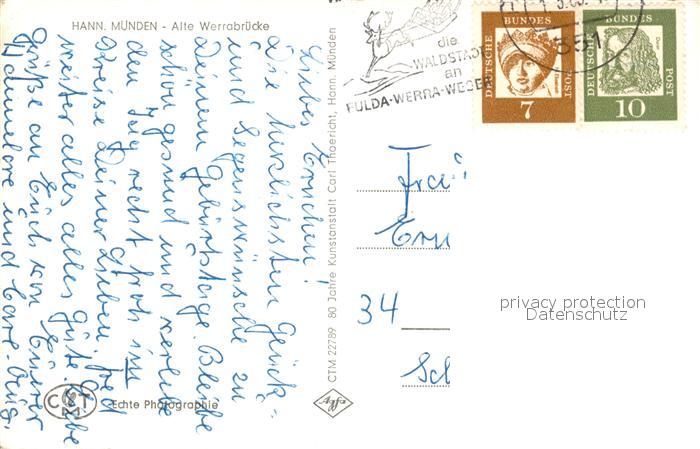 HANN. MÜNDEN - Alte Werrabrücke
Liebes Ernchen!
Die herzlichsten Glück-
und Segenswünsche zu
Deinem Geburtstage. Bleibe
schön gesund und verlebe
den Tag recht froh im
Kreise Deiner Lieben. Und
weiter alles alles Gute. Liebe
Grüße an Euch von Eurer
Hannelore und Carl-Aug.
CTM 22789 80 Jahre Kunstanstalt Carl Thoericht, Hann. Münden
CTM
Echte Photographie
Agfa
die
WALDSTADT
an
FULDA-WERRA-WESER
351
DEUTSCHE BUNDES POST
7
DEUTSCHE BUNDES POST
Dürer
10
Frau
Ern
34
Sch
privacy protection
Datenschutz